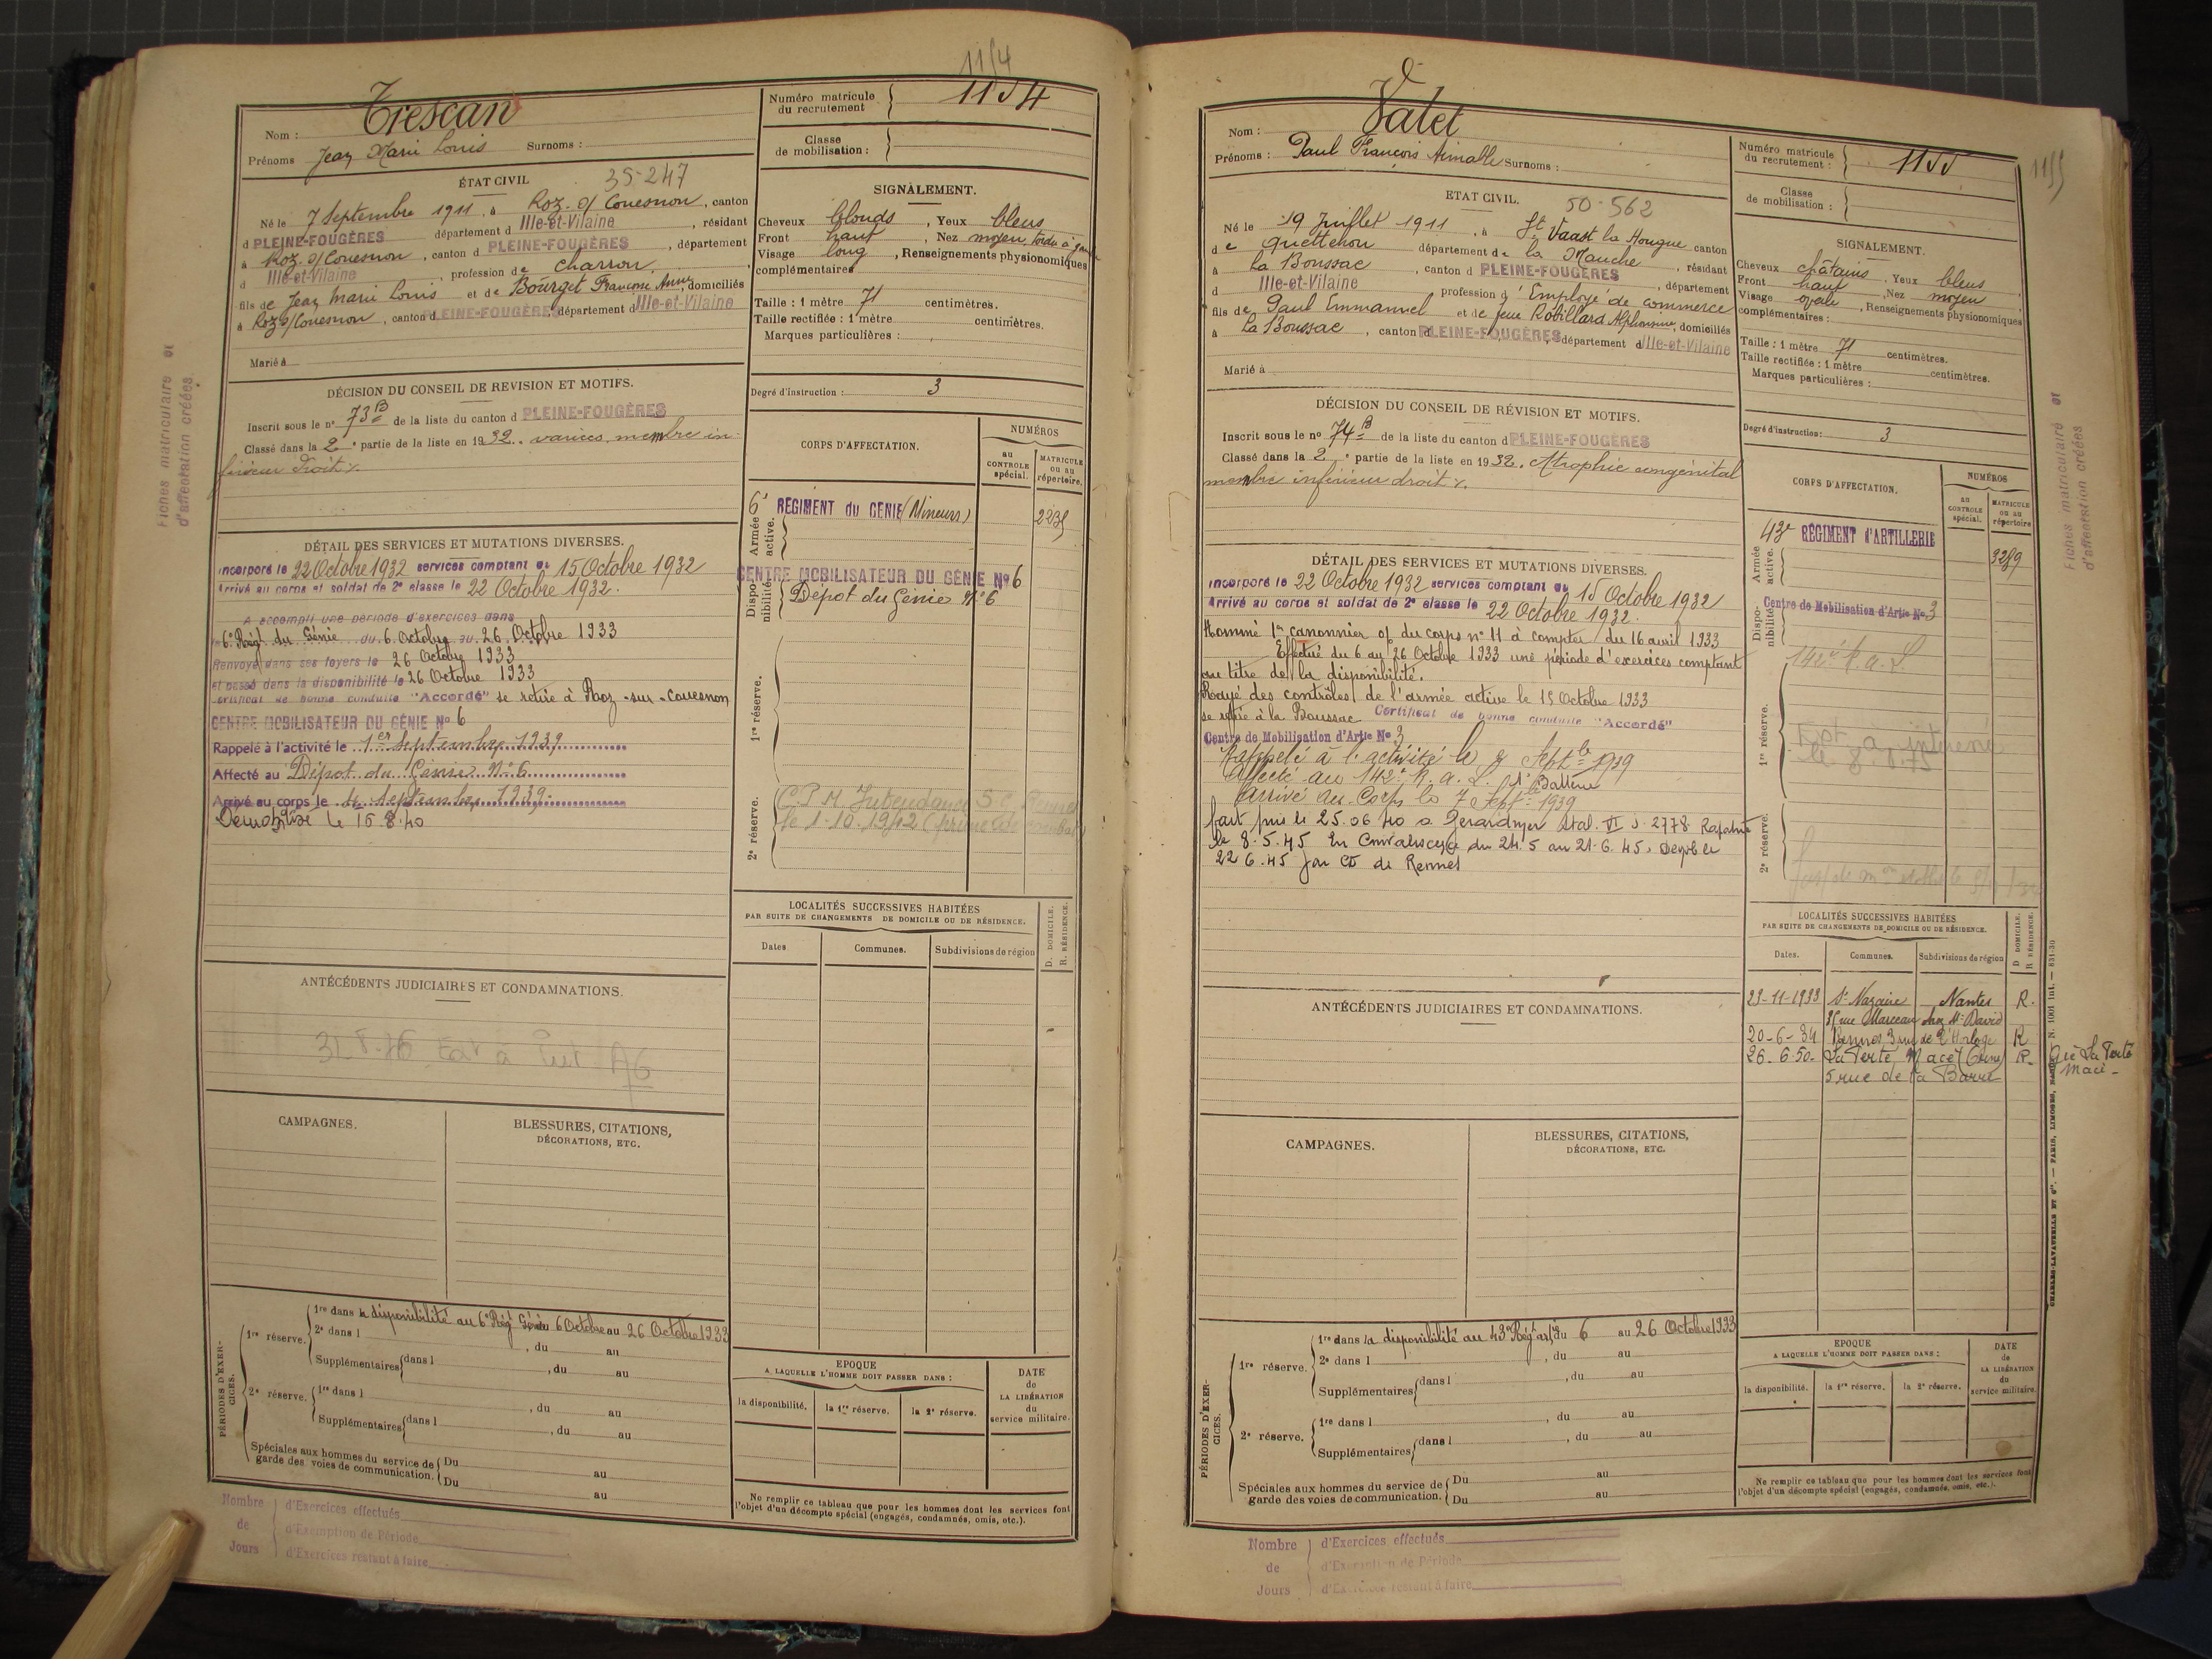 1154
Nom : Trescan
Prénoms Jean Marie Louis Surnoms :
Numéro matricule du recrutement 1154
Classe de mobilisation :
ÉTAT CIVIL
35-247
Né le 7 Septembre 1911, à Roz. s/ Couesnon, canton
d PLEINE-FOUGÈRES département d Ille-et-Vilaine, résidant
à Roz. s/ Couesnon, canton d PLEINE-FOUGÈRES, département
d Ille-et-Vilaine, profession de charron,
fils de Jean Marie Louis et de Bourget Françoise Anne, domiciliés
à Roz s/ Couesnon, canton d PLEINE-FOUGÈRES département d Ille-et-Vilaine
Marié à
SIGNALEMENT.
Cheveux blonds, Yeux bleus
Front haut, Nez moyen, tordu à gauche
Visage long, Renseignements physionomiques
complémentaires
Taille : 1 mètre 71 centimètres.
Taille rectifiée : 1 mètre centimètres.
Marques particulières :
Degré d'instruction : 3
DÉCISION DU CONSEIL DE REVISION ET MOTIFS.
Inscrit sous le n° 73 B de la liste du canton d PLEINE-FOUGÈRES
Classé dans la 2e partie de la liste en 1932. varices membre in-
férieur droit
CORPS D'AFFECTATION.
NUMÉROS
au CONTROLE spécial.
MATRICULE ou au répertoire.
Armée active.
6e RÉGIMENT du GÉNIE (Mineurs)
2235
Disponibilité
CENTRE MOBILISATEUR DU GÉNIE N° 6
Dépot du Génie N° 6
1re réserve.
2e réserve.
le 1-10-1942
DÉTAIL DES SERVICES ET MUTATIONS DIVERSES.
Incorporé le 22 Octobre 1932 services comptant du 15 Octobre 1932
Arrivé au corps et soldat de 2e classe le 22 Octobre 1932.
A accompli une période d'exercices dans
le 6e Régt du Génie du 6 Octobre au 26 Octobre 1933
Renvoyé dans ses foyers le 26 Octobre 1933
et passé dans la disponibilité le 26 Octobre 1933
Certificat de bonne conduite "Accordé" se retire à Roz-sur-Couesnon
CENTRE MOBILISATEUR DU GÉNIE N° 6
Rappelé à l'activité le 1er Septembre 1939
Affecté au Dépot du Génie N° 6
Arrivé au corps le 4 Septembre 1939.
Démobilisé le 16.8.40
Fiches matriculaire et
d'affectation créées
ANTÉCÉDENTS JUDICIAIRES ET CONDAMNATIONS.
CAMPAGNES.
BLESSURES, CITATIONS,
DÉCORATIONS, ETC.
LOCALITÉS SUCCESSIVES HABITÉES
PAR SUITE DE CHANGEMENTS DE DOMICILE OU DE RÉSIDENCE.
Dates
Communes.
Subdivisions de région
D. DOMICILE.
R. RÉSIDENCE.
PÉRIODES D'EXERCICES.
1re réserve.
1re dans la disponibilité au 6e Régt Génie du 6 Octobre au 26 Octobre 1933
2e dans l , du au
Supplémentaires dans l , du au
2e réserve.
1re dans l , du au
Supplémentaires dans l , du au
Spéciales aux hommes du service de Du au
garde des voies de communication. Du au
EPOQUE
A LAQUELLE L'HOMME DOIT PASSER DANS :
la disponibilité.
la 1re réserve.
la 2e réserve.
DATE de LA LIBÉRATION du service militaire.
Ne remplir ce tableau que pour les hommes dont les services font
l'objet d'un décompte spécial (engagés, condamnés, omis, etc.).
Nombre de Jours
d'Exercices effectués
d'Exemption de Période
d'Exercices restant à faire
Nom : Valet
Prénoms : Paul François Surnoms :
Numéro matricule du recrutement : 1155
1155
Classe de mobilisation :
ETAT CIVIL.
50-562
Né le 19 Juillet 1911, à St Vaast la Hougue canton
de Quettehou département de la Manche, résidant
à La Boussac, canton d PLEINE-FOUGÈRES, département
d Ille-et-Vilaine profession d'Employé de commerce
fils de Paul Emmanuel et de feue Robillard Alphonsine, domiciliés
à La Boussac, canton d PLEINE-FOUGÈRES, département d Ille-et-Vilaine
Marié à
SIGNALEMENT.
Cheveux châtains, Yeux bleus
Front haut, Nez moyen
Visage ovale, Renseignements physionomiques
complémentaires :
Taille : 1 mètre 71 centimètres.
Taille rectifiée : 1 mètre centimètres.
Marques particulières :
Degré d'instruction : 3
DÉCISION DU CONSEIL DE RÉVISION ET MOTIFS.
Inscrit sous le n° 74 B de la liste du canton d PLEINE-FOUGÈRES
Classé dans la 2e partie de la liste en 1932. Atrophie congénital
membre inférieur droit
CORPS D'AFFECTATION.
NUMÉROS
au CONTROLE spécial.
MATRICULE ou au répertoire
Armée active.
43e RÉGIMENT d'ARTILLERIE
3289
Disponibilité
Centre de Mobilisation d'Artie N° 3
142e R.a.L
1re réserve.
2e réserve.
DÉTAIL DES SERVICES ET MUTATIONS DIVERSES.
Incorporé le 22 Octobre 1932 services comptant du 15 Octobre 1932
Arrivé au corps et soldat de 2e classe le 22 Octobre 1932.
Nommé 1er canonnier of du corps n° 11 à compter du 16 avril 1933
Effectué du 6 au 26 Octobre 1933 une période d'exercices comptant
au titre de la disponibilité.
Rayé des contrôles de l'armée active le 15 Octobre 1933
se retire à la Boussac Certificat de bonne conduite "Accordé"
Centre de Mobilisation d'Artie N° 3
Rappelé à l'activité le Septbre 1939
Affecté au 142e R.a.L. Batterie
Arrivé au Corps le 7 Septbre 1939
fait pris le 25.06.40 a Gerardmer Stal. VI J. 2778 Rapatrié
le 8.5.45 En Convalescence du 24.5 au 21.6.45. Demob le
22 6.45 par CD de Rennes
Fiches matriculaire et
d'affectation créées
ANTÉCÉDENTS JUDICIAIRES ET CONDAMNATIONS.
CAMPAGNES.
BLESSURES, CITATIONS,
DÉCORATIONS, ETC.
LOCALITÉS SUCCESSIVES HABITÉES
PAR SUITE DE CHANGEMENTS DE DOMICILE OU DE RÉSIDENCE.
Dates.
Communes.
Subdivisions de région
D DOMICILE.
R RÉSIDENCE.
23-11-1933 St Nazaire Nantes R.
35 rue Marceau chez Mr David
20-6-34 Rennes 3 rue de l'Horloge R
26-6-50- La Ferté Macé (Orne) R-
5 rue de la Barre
La Ferté
Macé-
CHARLES-LAVAUZELLE ET Cie. — PARIS, LIMOGES, NANCY. N. 1001 int. — 831-30
PÉRIODES D'EXERCICES.
1re réserve.
1re dans la disponibilité au 43e Régt art. du 6 au 26 Octobre 1933
2e dans l , du au
Supplémentaires dans l , du au
2e réserve.
1re dans l , du au
Supplémentaires dans l , du au
Spéciales aux hommes du service de Du au
garde des voies de communication. Du au
EPOQUE
A LAQUELLE L'HOMME DOIT PASSER DANS :
la disponibilité.
la 1re réserve.
la 2e réserve.
DATE de LA LIBÉRATION du service militaire.
Ne remplir ce tableau que pour les hommes dont les services font
l'objet d'un décompte spécial (engagés, condamnés, omis, etc.).
Nombre de Jours
d'Exercices effectués
d'Exemption de Période
d'Exercices restant à faire